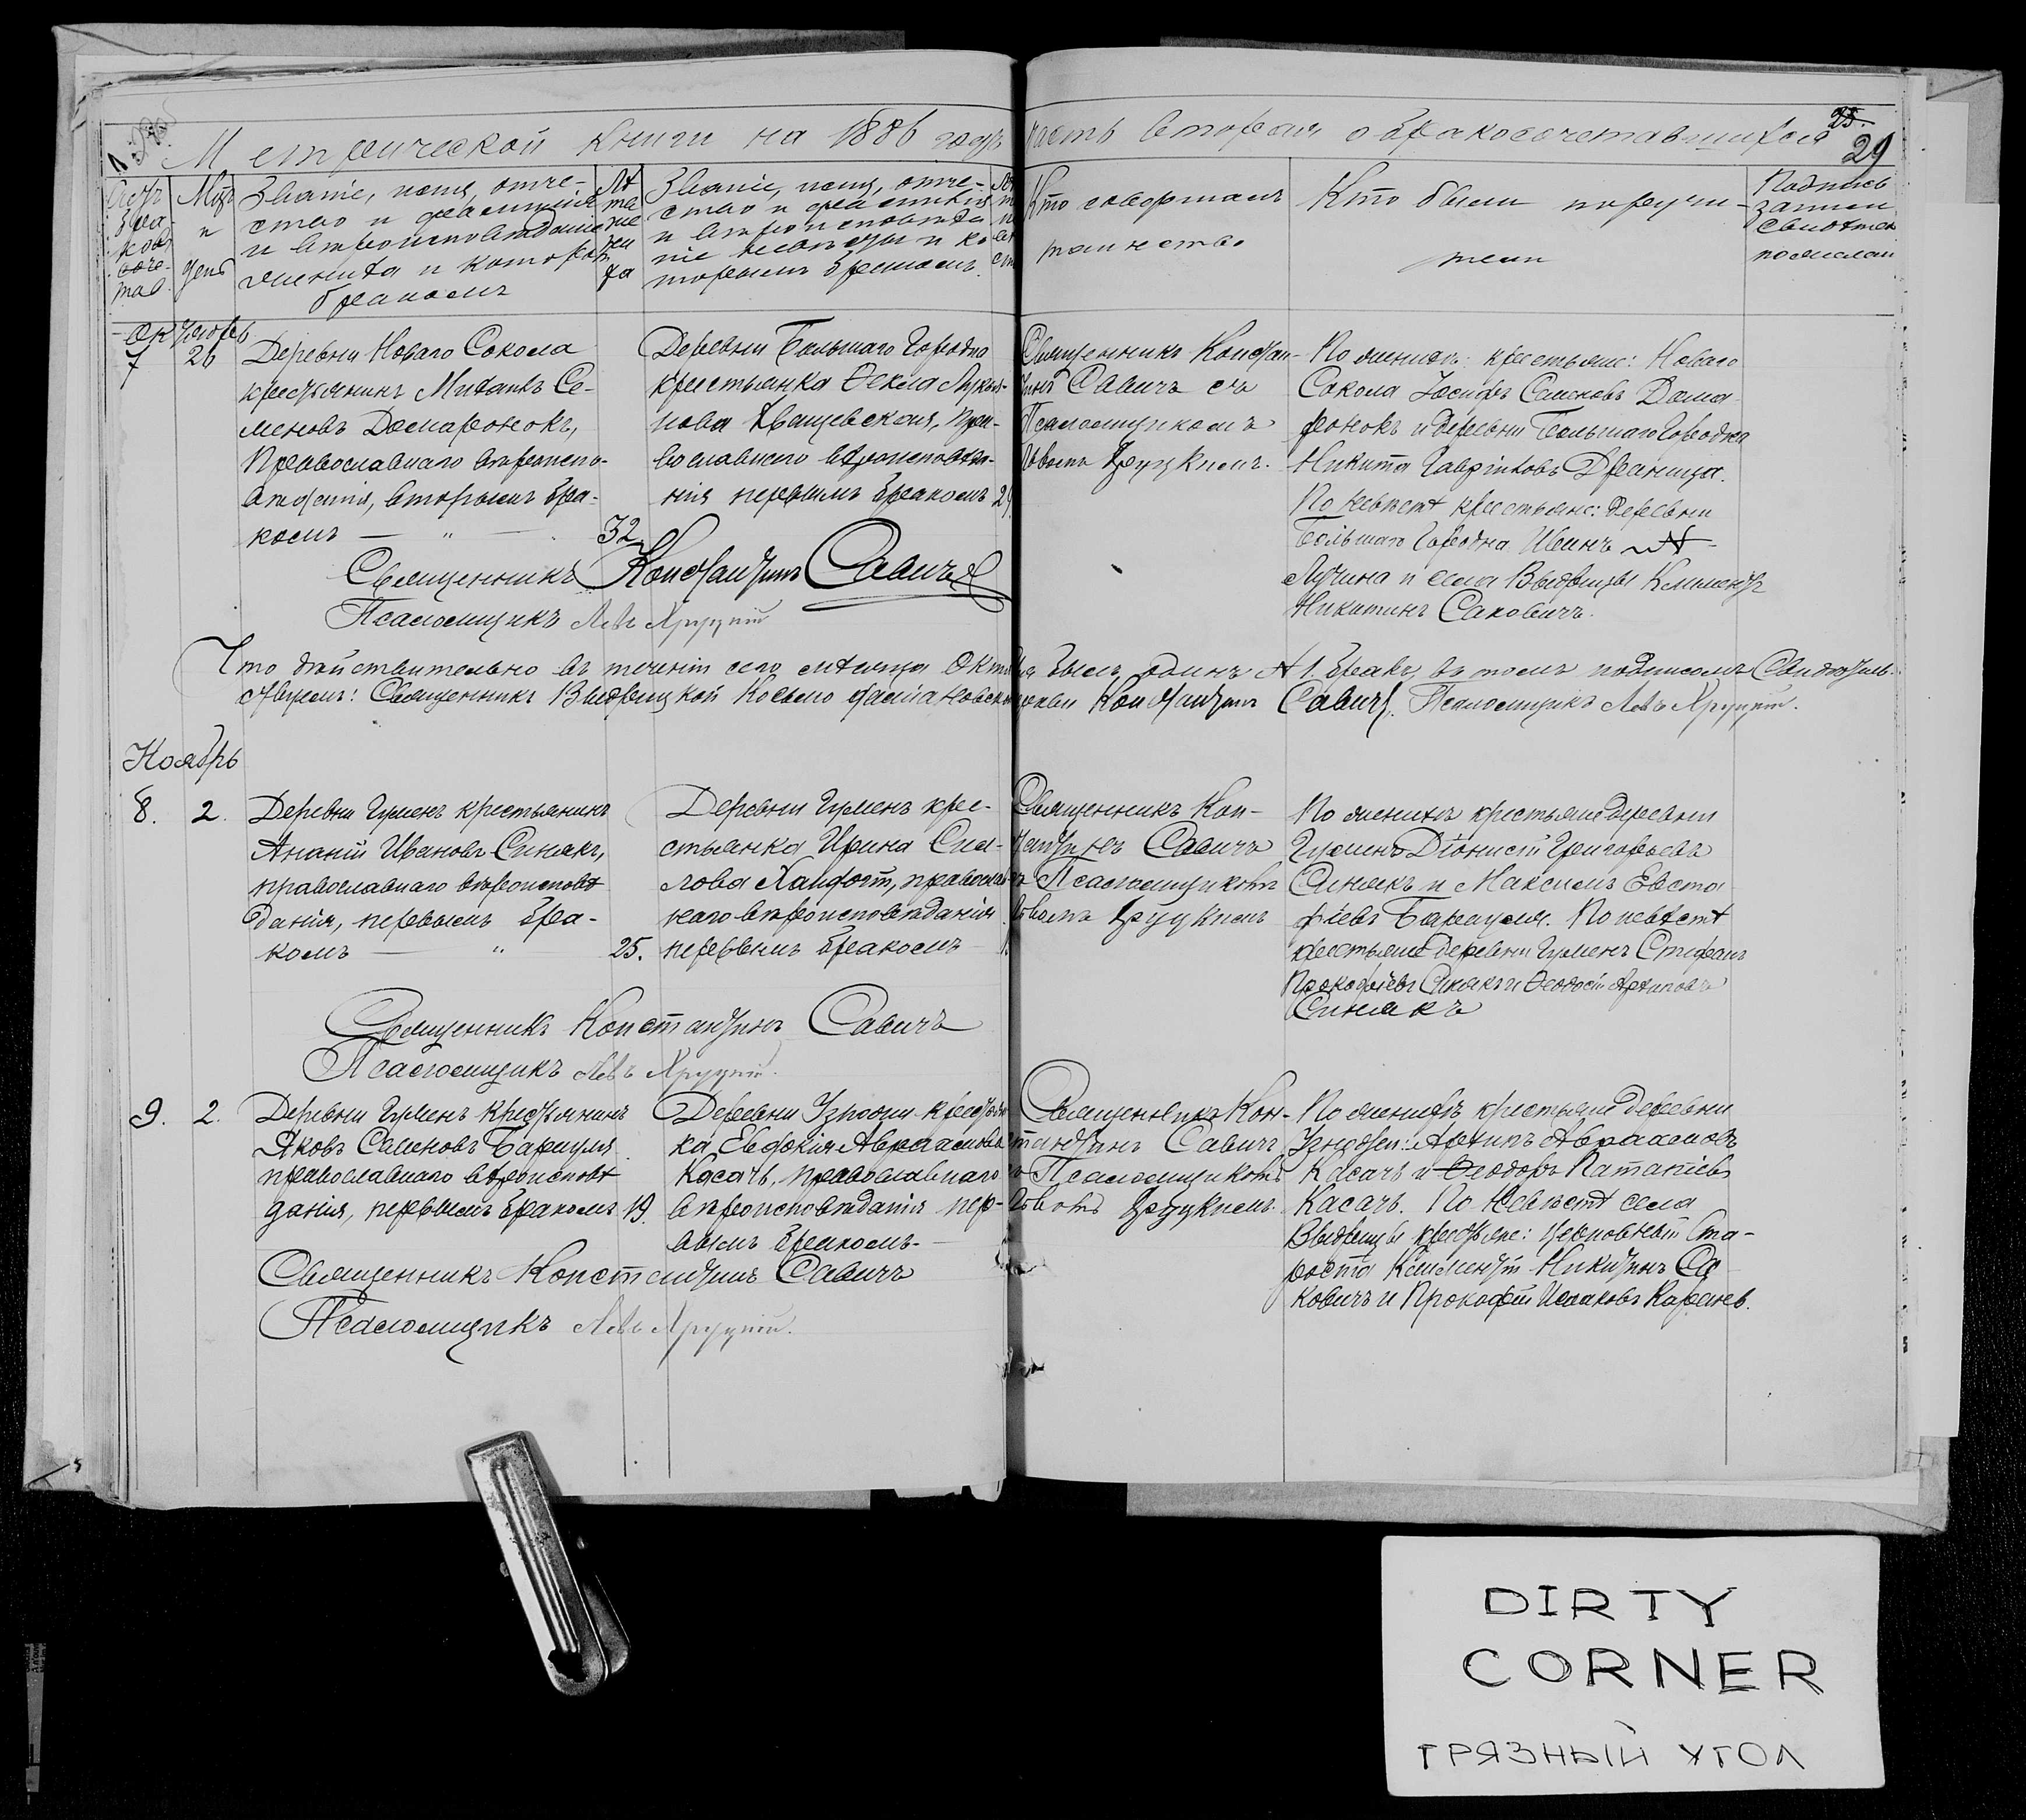 25.
29
Метрической книги на 1886 годъ часть вторая о бракосочетавшихся
Счетъ бра-ковъ соче-тав.
Мѣс. и день
Званіе, имя, отче-
ство и фамилія
и вѣроисповѣданіе
жениха и которымъ
бракомъ
Лѣ
та
же
ни
ха
Званіе, имя, отче-
ство и фамилія
и вѣроисповѣда
ніе невѣсты и ко
торымъ бракомъ.
Кто совершалъ
таинство
Кто были поручи-
тели
Подпись
запис
свидѣтел
по желан
Октябрь
7 26
Деревни Новаго Сокола
крестьянинъ Михаилъ Се-
меновъ Домаронокъ,
Православнаго вѣроиспо-
вѣданія, вторымъ бра-
комъ — " — 32
Деревни Большаго Городна
крестьянка Ѳекла Лукья-
нова Квацевская, пра-
вославнаго вѣроисповѣда-
нія первымъ бракомъ
Священникъ Констан-
тинъ Савичъ съ
Псаломщикомъ
Львомъ Хруцкимъ.
По женихѣ крестьяне: Новаго
Сокола Іосифъ Семеновъ Дома-
ронокъ и деревни Большаго Городна
Никита Гавріиловъ Драница.
По невѣстѣ крестьяне: деревни
Большаго Городна Иванъ
Лучина и села Выдрицы Климентъ
Никитинъ Саковичъ.
Священникъ Константинъ Савичъ
Псаломщикъ Левъ Хруцкій
Что дѣйствительно въ теченіи сего мѣсяца Октября былъ одинъ № 1. бракъ, въ томъ подписомъ свидѣтель-
ствуемъ: Священникъ Выдрицкой Косьмо-Даміановской церкви Константинъ Савичъ. Псаломщикъ Левъ Хруцкій.
Ноябрь
8. 2.
Деревни Гуменъ крестьянинъ
Ананій Ивановъ Синякъ,
православнаго вѣроисповѣ
данія, первымъ бра-
комъ — " 25.
Деревни Гуменъ крес-
тьянка Ирина Сид-
лова, правосла
наго вѣроисповѣданія
первымъ бракомъ
Священникъ Кон-
стантинъ Савичъ
съ Псаломщикомъ
Львомъ Хруцкимъ
По женихѣ крестьяне деревни
Гуменъ Діонисій Григорьевъ
Синякъ и Максимъ Евста
фіевъ Барауля. По невѣстѣ
крестьяне деревни Гуменъ Стефанъ
Прокофіевъ Синякъ и Ѳеодосій Архиповъ
Синякъ
Священникъ Константинъ Савичъ
Псаломщикъ Левъ Хруцкій.
9. 2.
Деревни Гуменъ крестьянинъ
Яковъ Семеновъ Барауля
православнаго вѣроисповѣ
данія, первымъ бракомъ 19.
Деревни Узнооги крестьян
ка Евдокія Авраамова
Касачъ, православнаго
вѣроисповѣданія пер-
вымъ бракомъ.
Священникъ Кон-
стантинъ Савичъ
съ Псаломщикомъ
Львомъ Хруцкимъ.
По женихѣ крестьяне деревни
Архипъ Авраамовъ
Касачъ и Ѳеодоръ Патапіевъ
Касачъ. По невѣстѣ села
Выдрицы крестьяне: церковный ста-
роста Климентій Никитинъ Са
ковичъ и Прокофій Исааковъ
Священникъ Константинъ Савичъ
Псаломщикъ Левъ Хруцкій.
DIRTY
CORNER
ГРЯЗНЫЙ УГОЛ